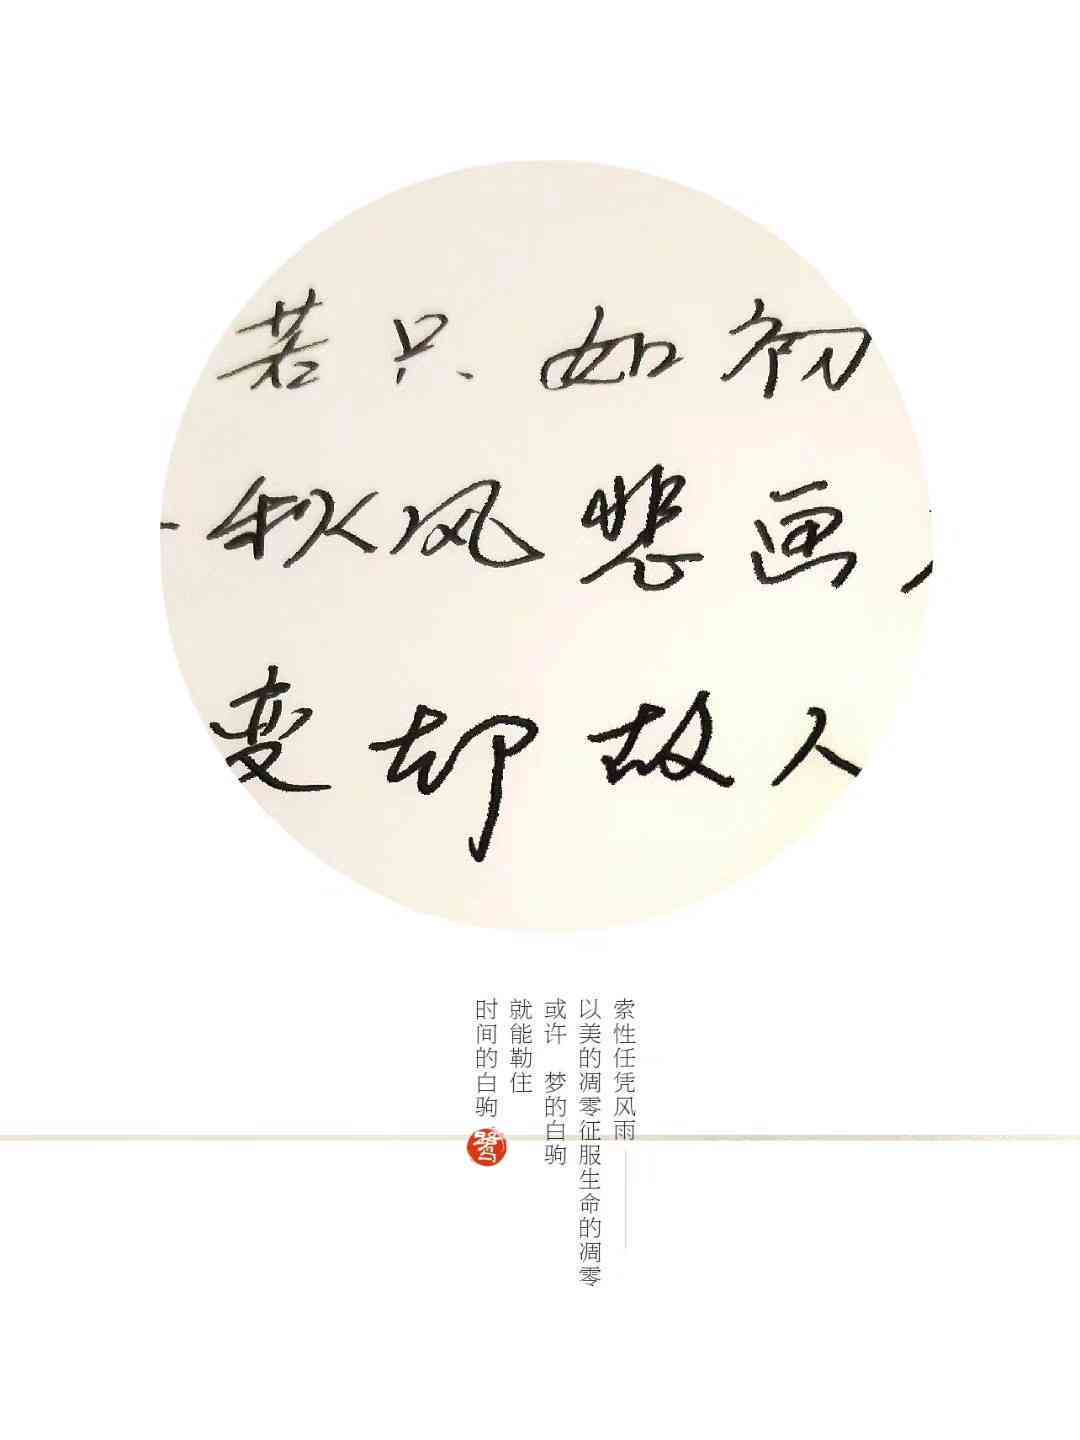 若只如初
秋风悲画
变却故人
索性任凭风雨——
以美的凋零征服生命的凋零
或许 梦的白驹
就能勒住
时间的白驹